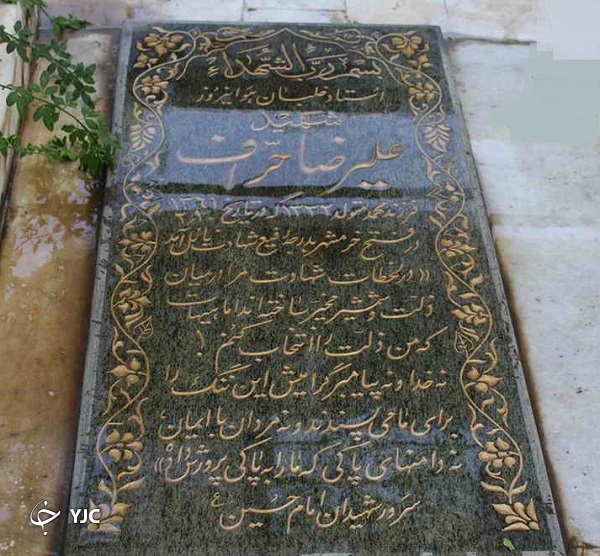 بسم رب الشهداء
استاد خلبان هوانیروز
شهید
علیرضا حرّاف
فرزند محمد متولد ۱۳۳۲ که در تاریخ ۱۳۶۱
در فتح خرمشهر بدرجه رفیع شهادت نایل آمد
«در لحظات شهادت مرا در میان
ذلت و شمشیر مخیر ساخته اند اما هیهات
که من ذلت را انتخاب کنم !
نه خدا و نه پیامبر گرامیش این ننگ را
برای ما می پسندند و نه مردان با ایمان،
نه دامنهای پاکی که ما را به پاکی پرورش داده»
سرور شهیدان امام حسین ع
YJC